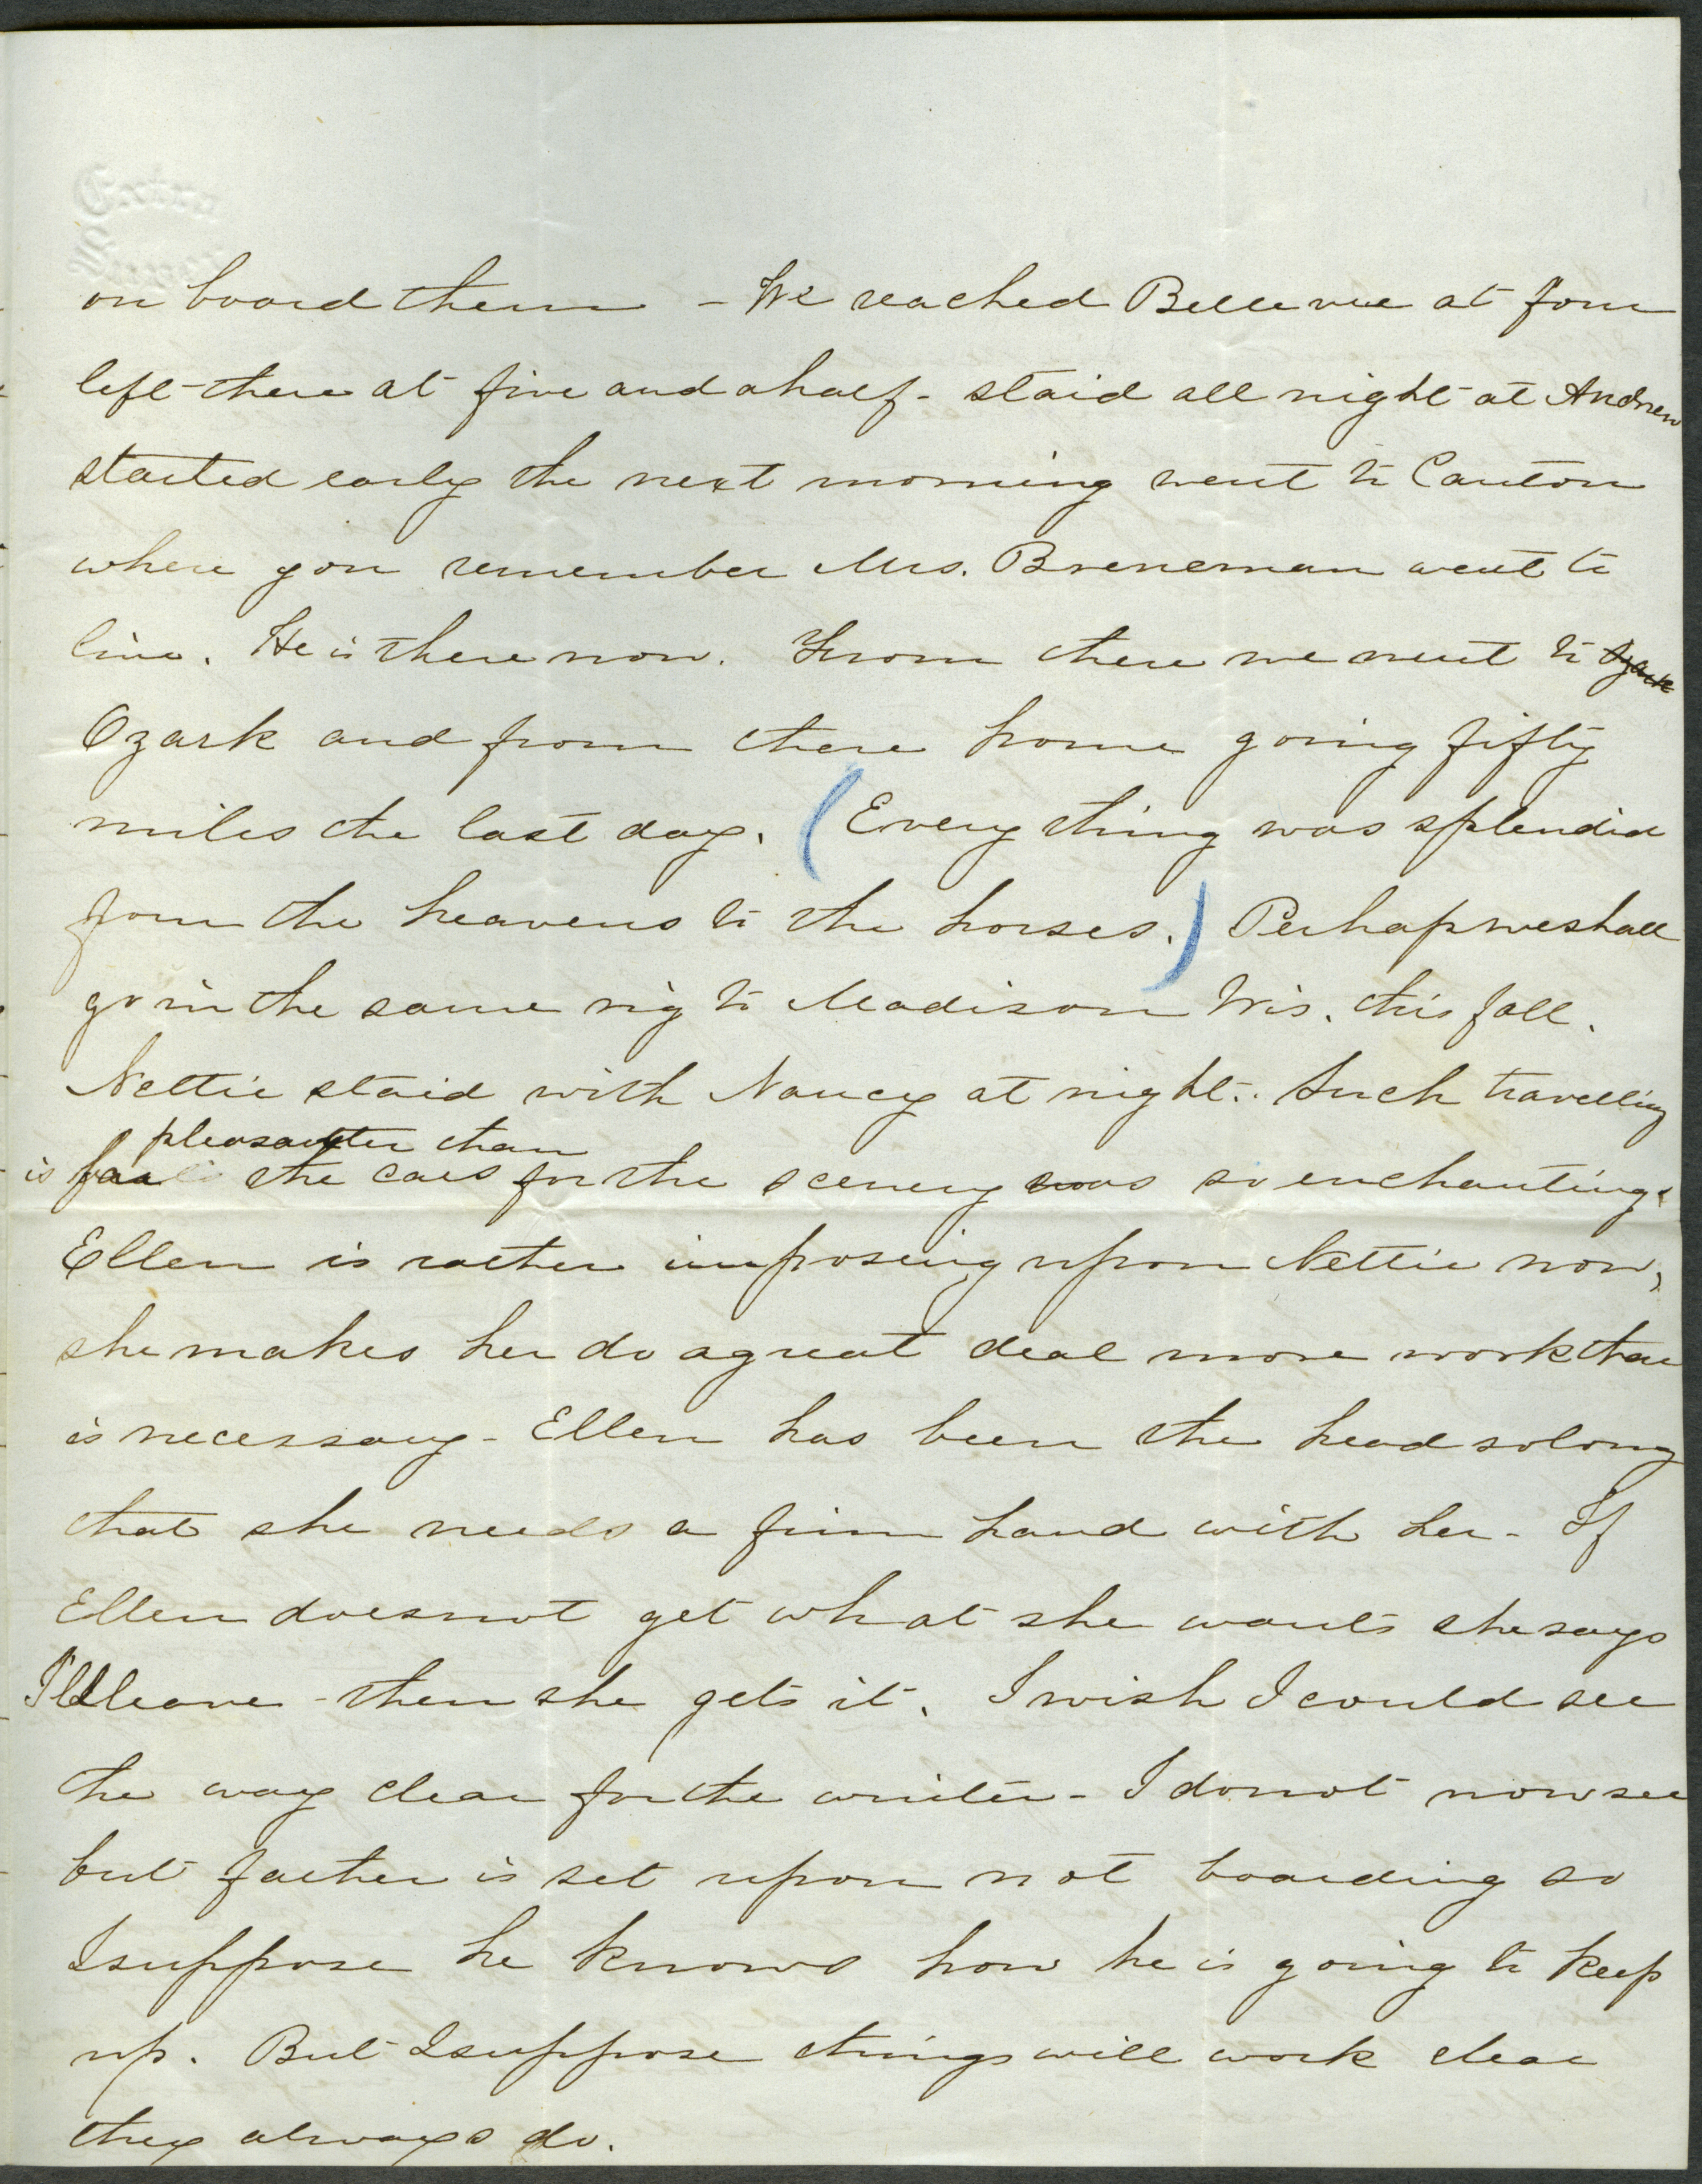 on board them - We reached Bellevue at four
left there at five and a half - staid all night at Andrew
started early the next morning went to Canton
where you remember Mrs. Breneman went to
live. He is there now. From there we went to
Ozark and from there home going fifty
miles the last day. (Every thing was splendid
from the heavens to the horses.) Perhap we shall
go in the same rig to Madison Wis. this fall.
Nettie staid with Nancy at night. Such travelling
pleasanter than
is far the cars for the scenery was so enchanting.
Ellen is rather imposing upon Nettie now,
she makes her do a great deal more work than
is necessary - Ellen has been the head so long
that she needs a firm hand with her - If
Ellen does not get what she wants she says
I'll leave - then she gets it. I wish I could see
the way clear for the winter - I do not now see
but father is set upon not boarding so
I suppose he knows how he is going to keep
up. But I suppose things will work clear
they always do.